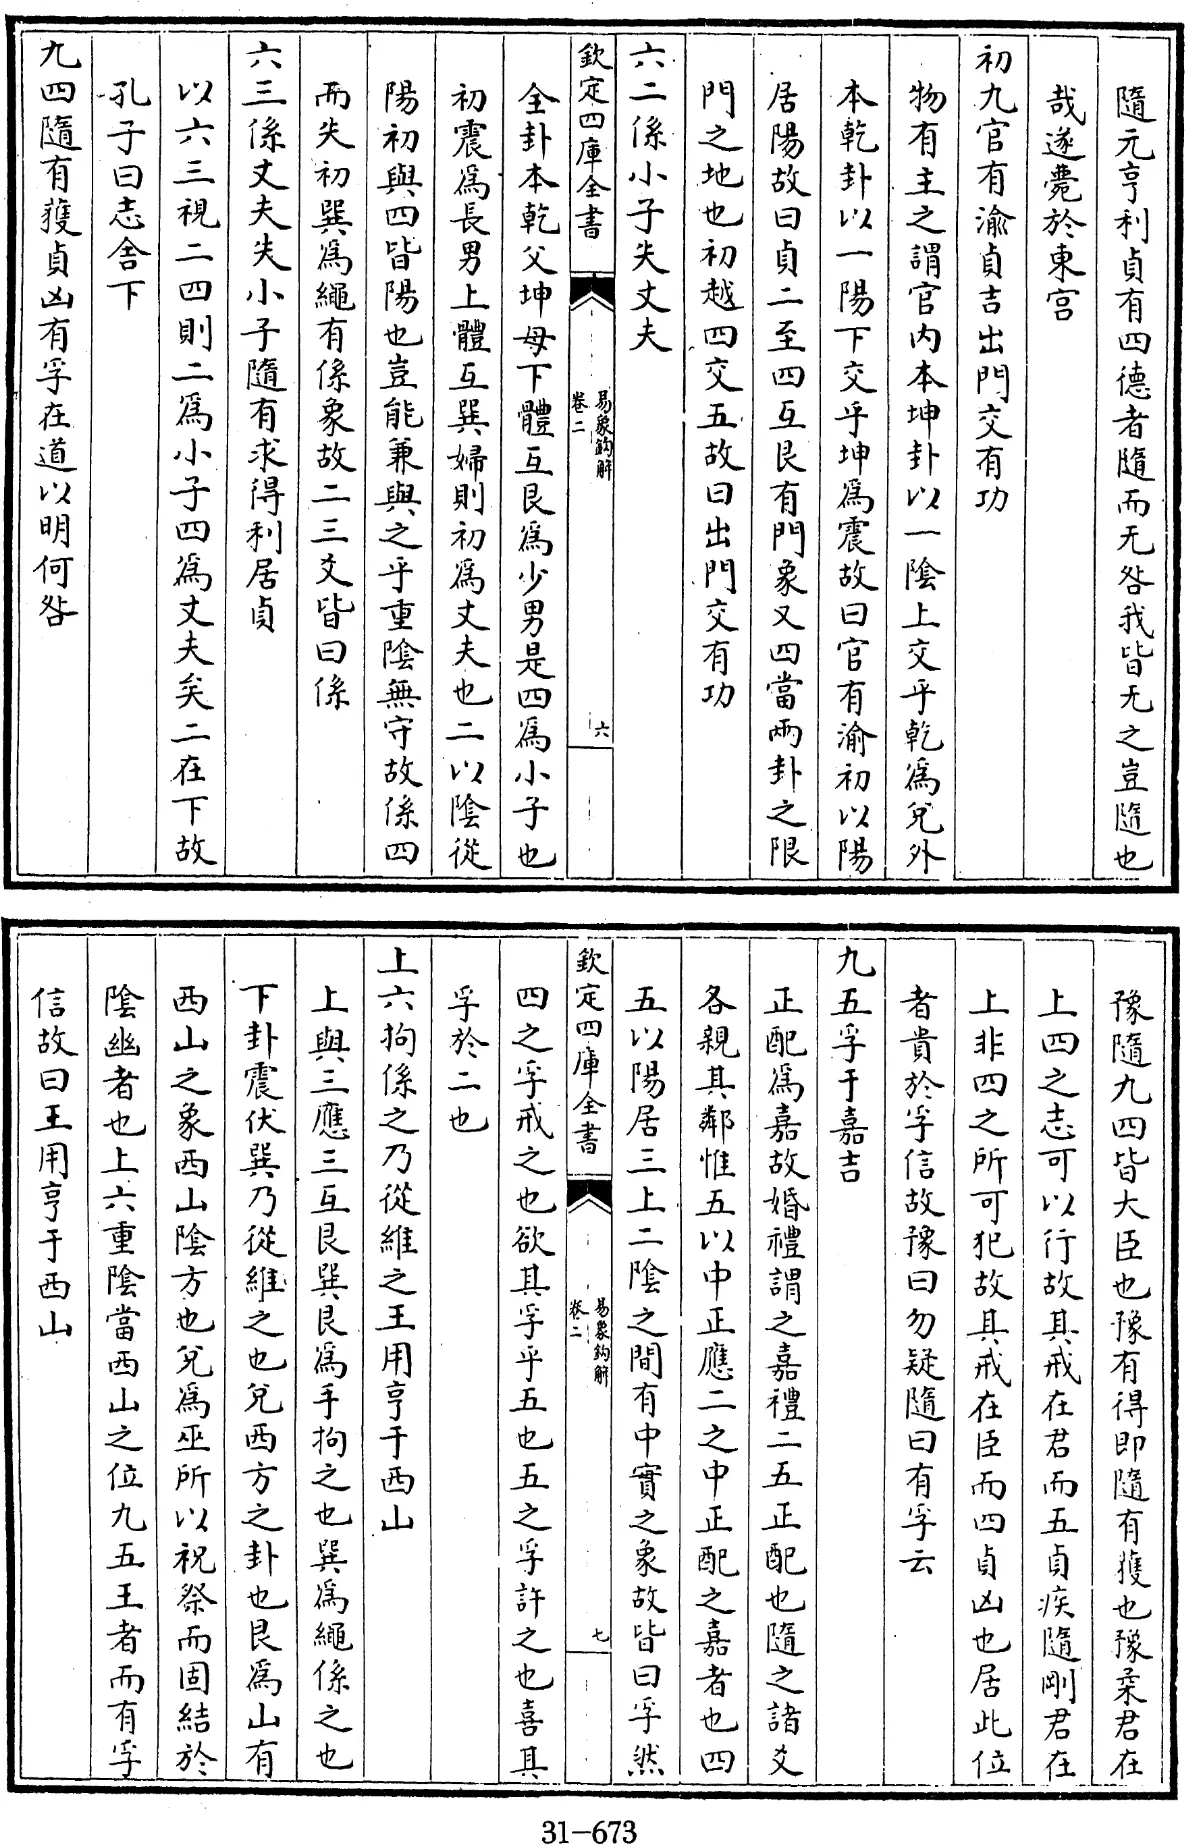 隨元亨利貞有四德者隨而无咎我皆无之豈隨也
哉遂薨於東宫
初九官有渝貞吉出門交有功
物有主之謂官内本坤卦以一陰上交乎乾爲兌外
本乾卦以一陽下交乎坤爲震故曰官有渝初以陽
居陽故曰貞二至四互艮有門象又四當兩卦之限
門之地也初越四交五故曰出門交有功
六二係小子失丈夫
欽定四庫全書
易象鈎解
卷二
六
全卦本乾父坤母下體互艮爲少男是四爲小子也
初震爲長男上體互巽婦則初爲丈夫也二以陰從
陽初與四皆陽也豈能兼與之乎重陰無守故係四
而失初巽爲繩有係象故二三爻皆曰係
六三係丈夫失小子隨有求得利居貞
以六三視二四則二爲小子四爲丈夫矣二在下故
孔子曰志舍下
九四隨有獲貞凶有孚在道以明何咎
豫隨九四皆大臣也豫有得即隨有獲也豫柔君在
上四之志可以行故其戒在君而五貞疾隨剛君在
上非四之所可犯故其戒在臣而四貞凶也居此位
者貴於孚信故豫曰勿疑隨曰有孚云
九五孚于嘉吉
正配爲嘉故婚禮謂之嘉禮二五正配也隨之諸爻
各親其鄰惟五以中正應二之中正配之嘉者也四
五以陽居三上二陰之間有中實之象故皆曰孚然
欽定四庫全書
易象鈎解
卷二
七
四之孚戒之也欲其孚乎五也五之孚許之也喜其
孚於二也
上六拘係之乃從維之王用亨于西山
上與三應三互艮巽艮爲手拘之也巽爲繩係之也
下卦震伏巽乃從維之也兌西方之卦也艮爲山有
西山之象西山陰方也兌爲巫所以祝祭而固結於
陰幽者也上六重陰當西山之位九五王者而有孚
信故曰王用亨于西山
31-673